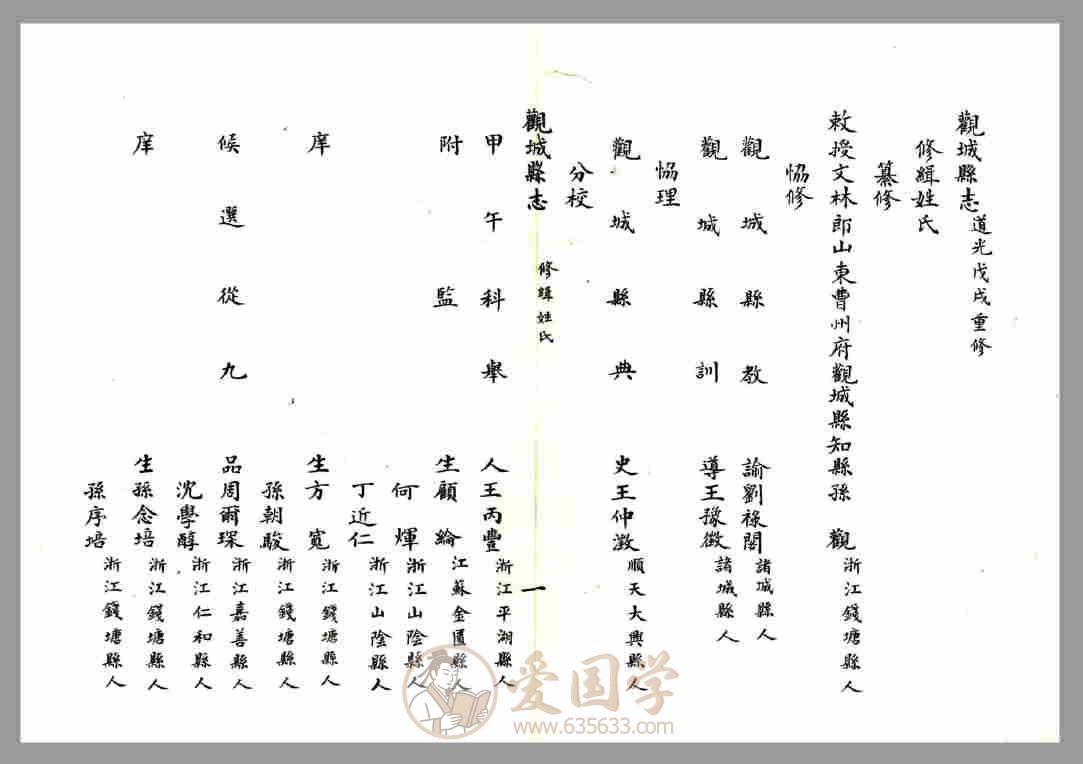 觀城縣志道光戊戌重修
修緝姓氏
纂修
敕授文林郎山東曹州府觀城縣知縣孫觀浙江錢塘縣人
恊修
觀城縣教諭劉祿閣諸城縣人
觀城縣訓導王豫徵諸城縣人
恊理
觀城縣典史王仲澂順天大興縣人
分校
觀城縣志 修緝姓氏 一
甲午科舉人王丙豐浙江平湖縣人
附監生顧綸江蘇金匱縣人
何煇浙江山陰縣人
丁近仁浙江山陰縣人
庠生方寬浙江錢塘縣人
孫朝駿浙江錢塘縣人
候選從九品周爾琛浙江嘉善縣人
沈學醇浙江仁和縣人
庠生孫念培浙江錢塘縣人
孫序培浙江錢塘縣人
爱国学
www.635633.com